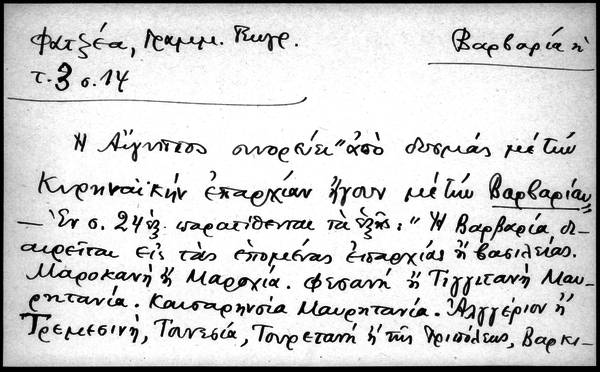 Φατζέα, Γραμμ. Γεωγρ.
Βαρβαρία ἡ
τ. 3 σ. 14
Ἡ Αἴγυπτος συνορεύει "ἀπὸ δυσμάς μὲ τὴν
Κυρηναϊκὴν ἐπαρχίαν ἤγουν μὲ τὴν Βαρβαρίαν"
– Ἐν σ. 24 ἑξ. παρατίθενται τὰ ἑξῆς: "Ἡ Βαρβαρία δι-
αιρεῖται εἰς τὰς ἑπομένας ἐπαρχίας ἢ βασιλείας.
Μαροκανὴ ἢ Μαροχία. Φεσανὴ ἢ Τιγγιτανὴ Μαυ-
ρητανία. Καισαρηνσία Μαυρητανία. Ἀλγγέριον ἢ
Τρεμεσινὴ, Τουνεσία, Τουρετανὴ ἢ τῆς Τριπόλεως, Βαρκι-